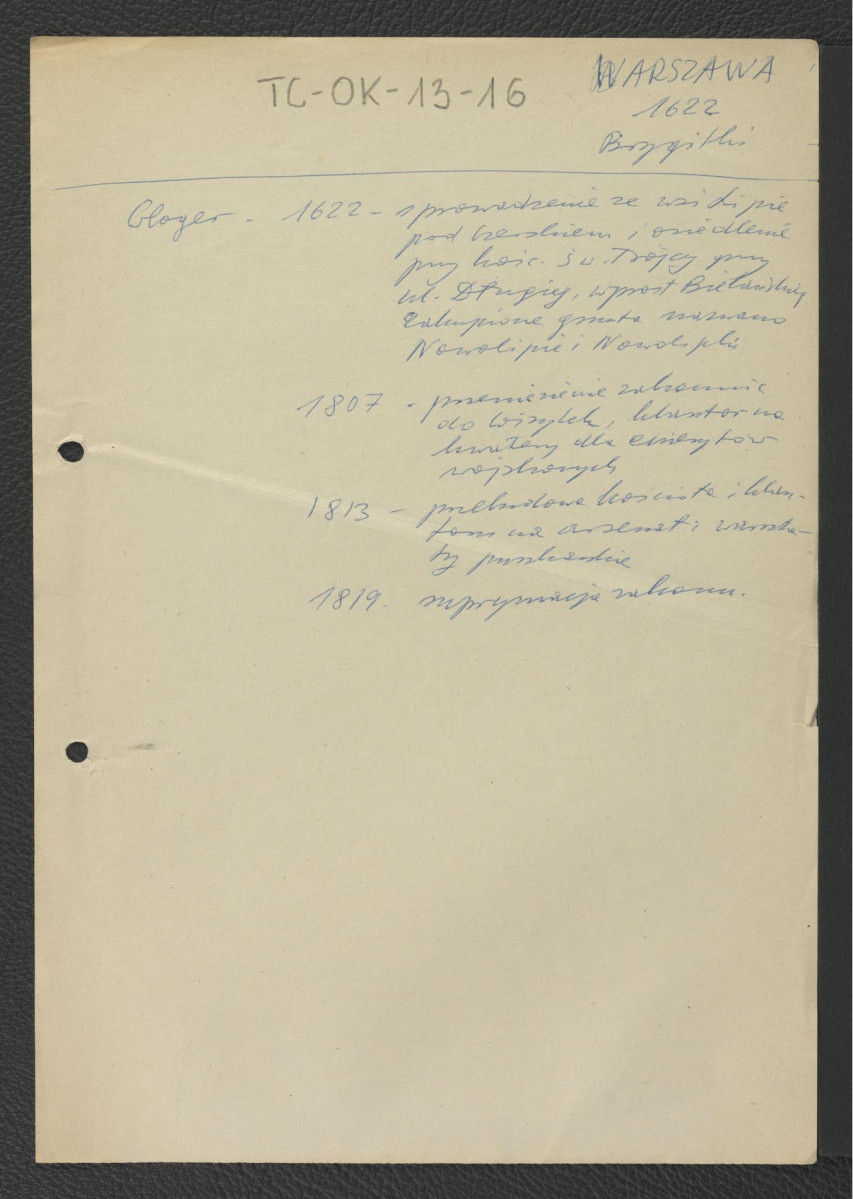 TC-OK-13-16
WARSZAWA
1622
Brygitki
Gloger - 1622 - sprowadzenie ze wsi Lipie
pod Czerskiem i osiedlenie
przy kośc. św. Trójcy przy
ul. Długiej, wprost Bielańskiej
Zakupione grunta nazwano
Nowolipie i Nowolipki
1807 - przeniesienie zakonnic
do Wizytek, klasztor na
kwatery dla emerytów
wojskowych
1813 - przebudowa kościoła i klasz-
toru na arsenał i warszta-
ty puszkarskie
1819. supresja zakonu.